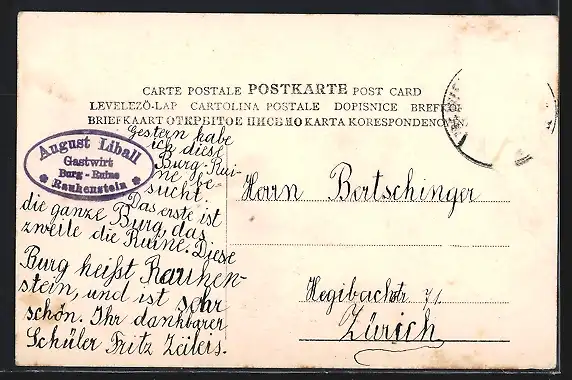 CARTE POSTALE POSTKARTE POST CARD
LEVELEZÖ-LAP CARTOLINA POSTALE DOPISNICE
BRIEFKAART ОТКРЫТОЕ ПИСЬМО KARTA
August Liball
Gastwirt
Burg - Ruine
Rauhenstein
Gestern habe
ich diese
Burg-Rui-
ne be-
sucht.
Das erste ist
die ganze Burg, das
zweite die Ruine. Diese
Burg heißt Rauhen-
stein, und ist sehr
schön. Ihr dankbarer
Schüler Fritz Zeileis.
Herrn Bertschinger
Hegibachstr 71
Zürich